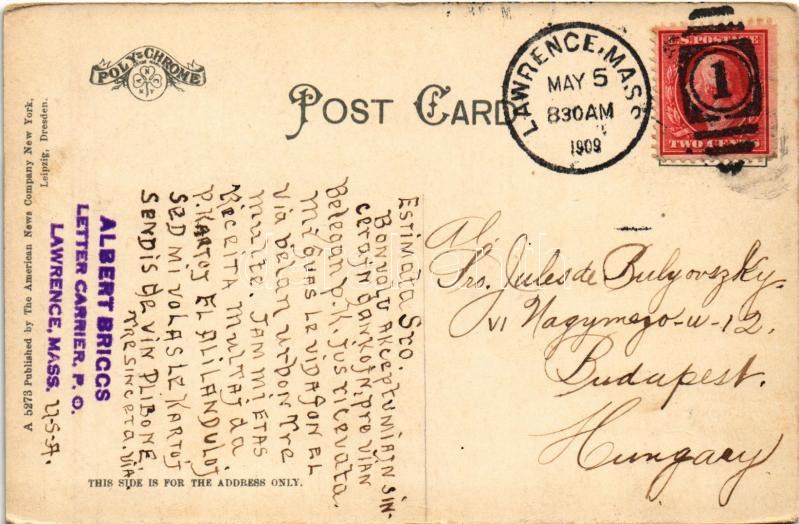 POLY-CHROME
POST CARD
LAWRENCE, MASS.
MAY 5
830 AM
1909
1
U.S. POSTAGE
TWO CENTS
A 5273 Published by The American News Company New York,
Leipzig, Dresden.
ALBERT BRIGGS
LETTER CARRIER, P. O.
LAWRENCE, MASS. U.S.A.
Estimata Sro.
Bonvolu akceptu miajn sin-
cerajn dankojn, pro vian
Belegan P.K. Jus ricevata.
Mi ĝuas le vidaĵon el
via belan urbon tre
multe. Jam mi estas
Ricevita multaj da
P. Kartoj el alilanduloj
sed mi volas le kartoj
sendis de vin plibone
tre sincera, via.
Al,
Sro. Jules de Bulyovszky.
VI Nagymezo-u-12.
Budapest.
Hungary
THIS SIDE IS FOR THE ADDRESS ONLY.
darabanth